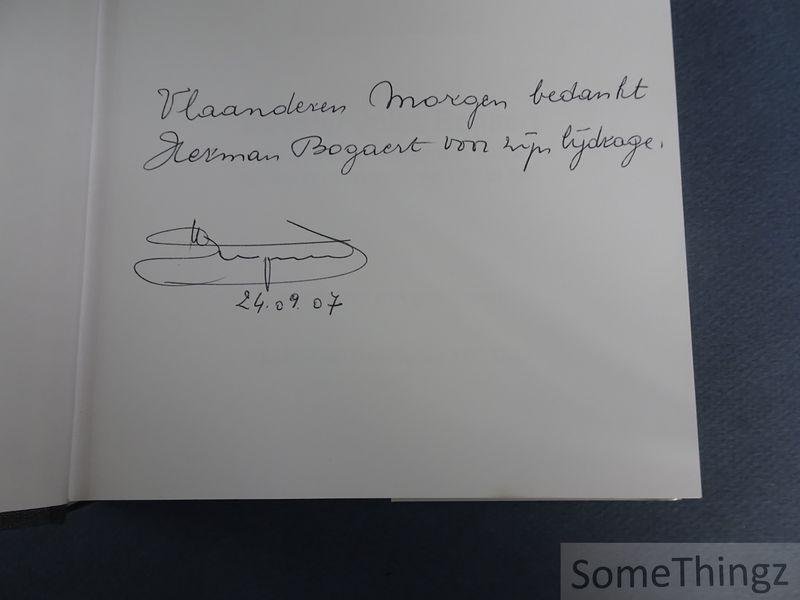 Vlaanderen Morgen bedankt
Herman Bogaert voor zijn bijdrage.
24.09.07
SomeThingz